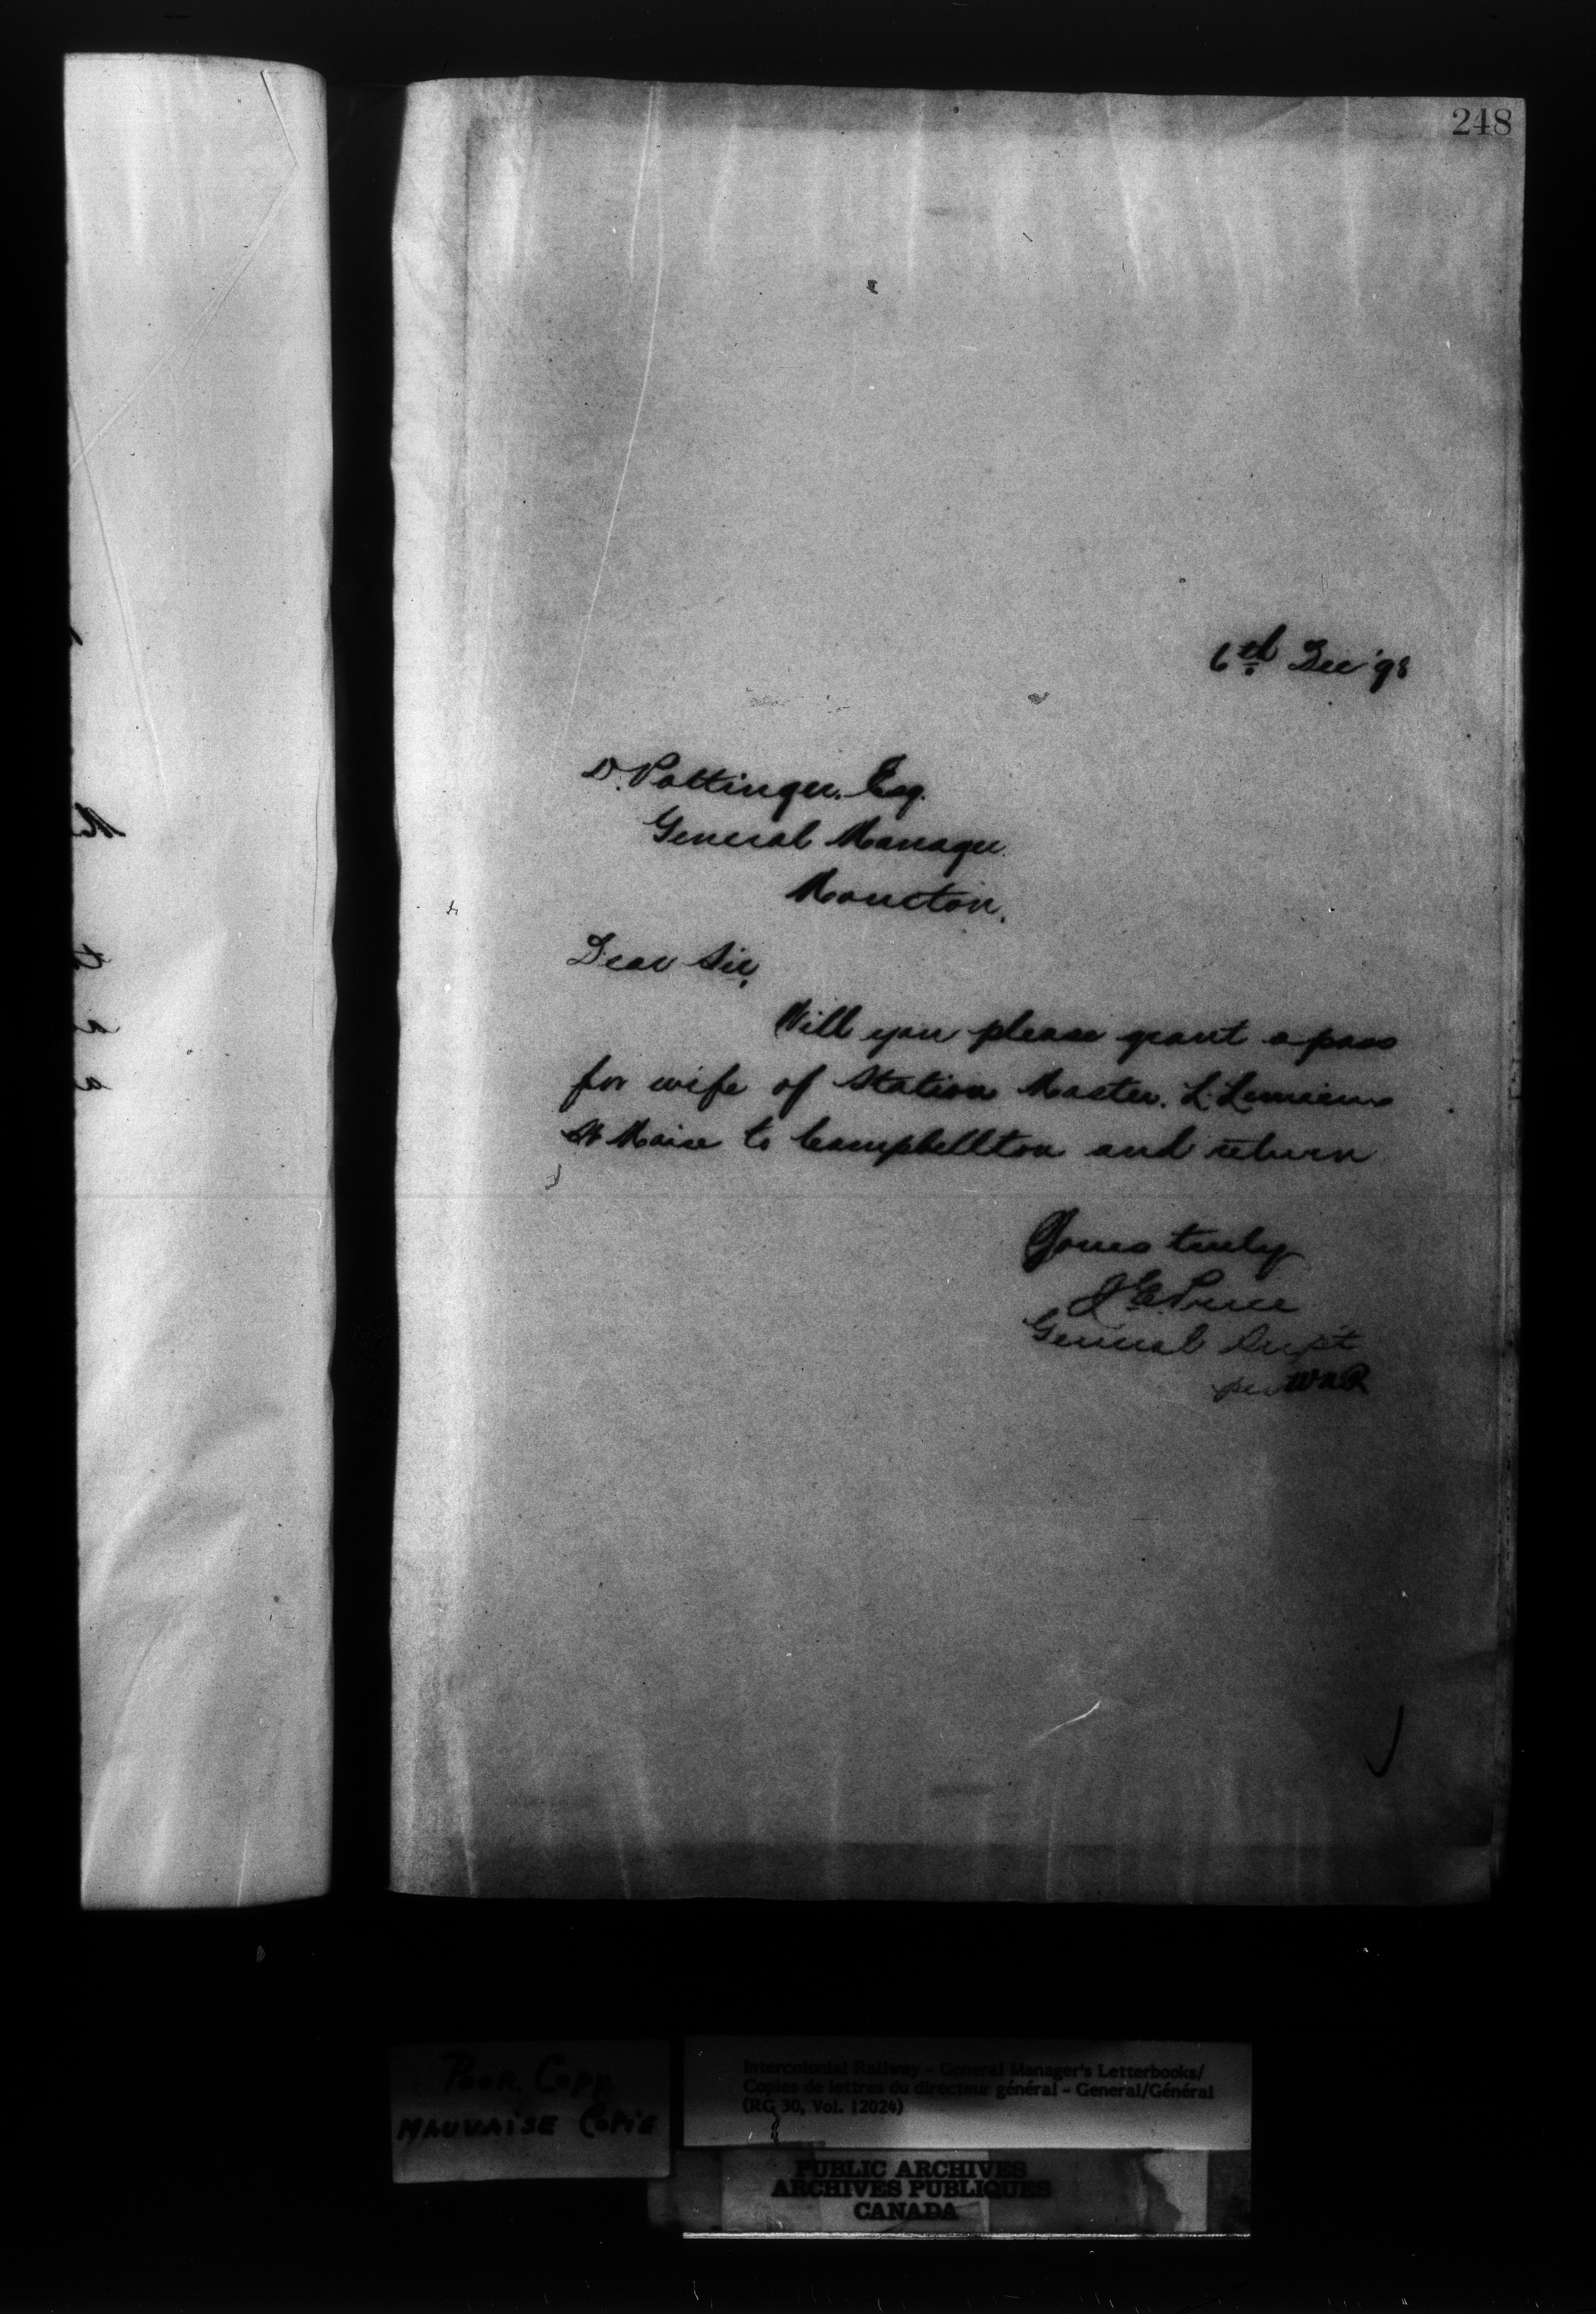 248
6th Dec '98
D. Pottinger. Esq.
General Manager.
Moncton.
Dear Sir,
Will you please grant a pass
for wife of Station Master. L. Lemieux
St Moise to Campbellton and return
Yours truly
J.E. Price
General Supt
per WRR
Poor Copy
MAUVAISE COPIE
Intercolonial Railway - General Manager's Letterbooks/
Copies de lettres du directeur général - General/Général
(RG 30, Vol. 12024)
PUBLIC ARCHIVES
ARCHIVES PUBLIQUES
CANADA